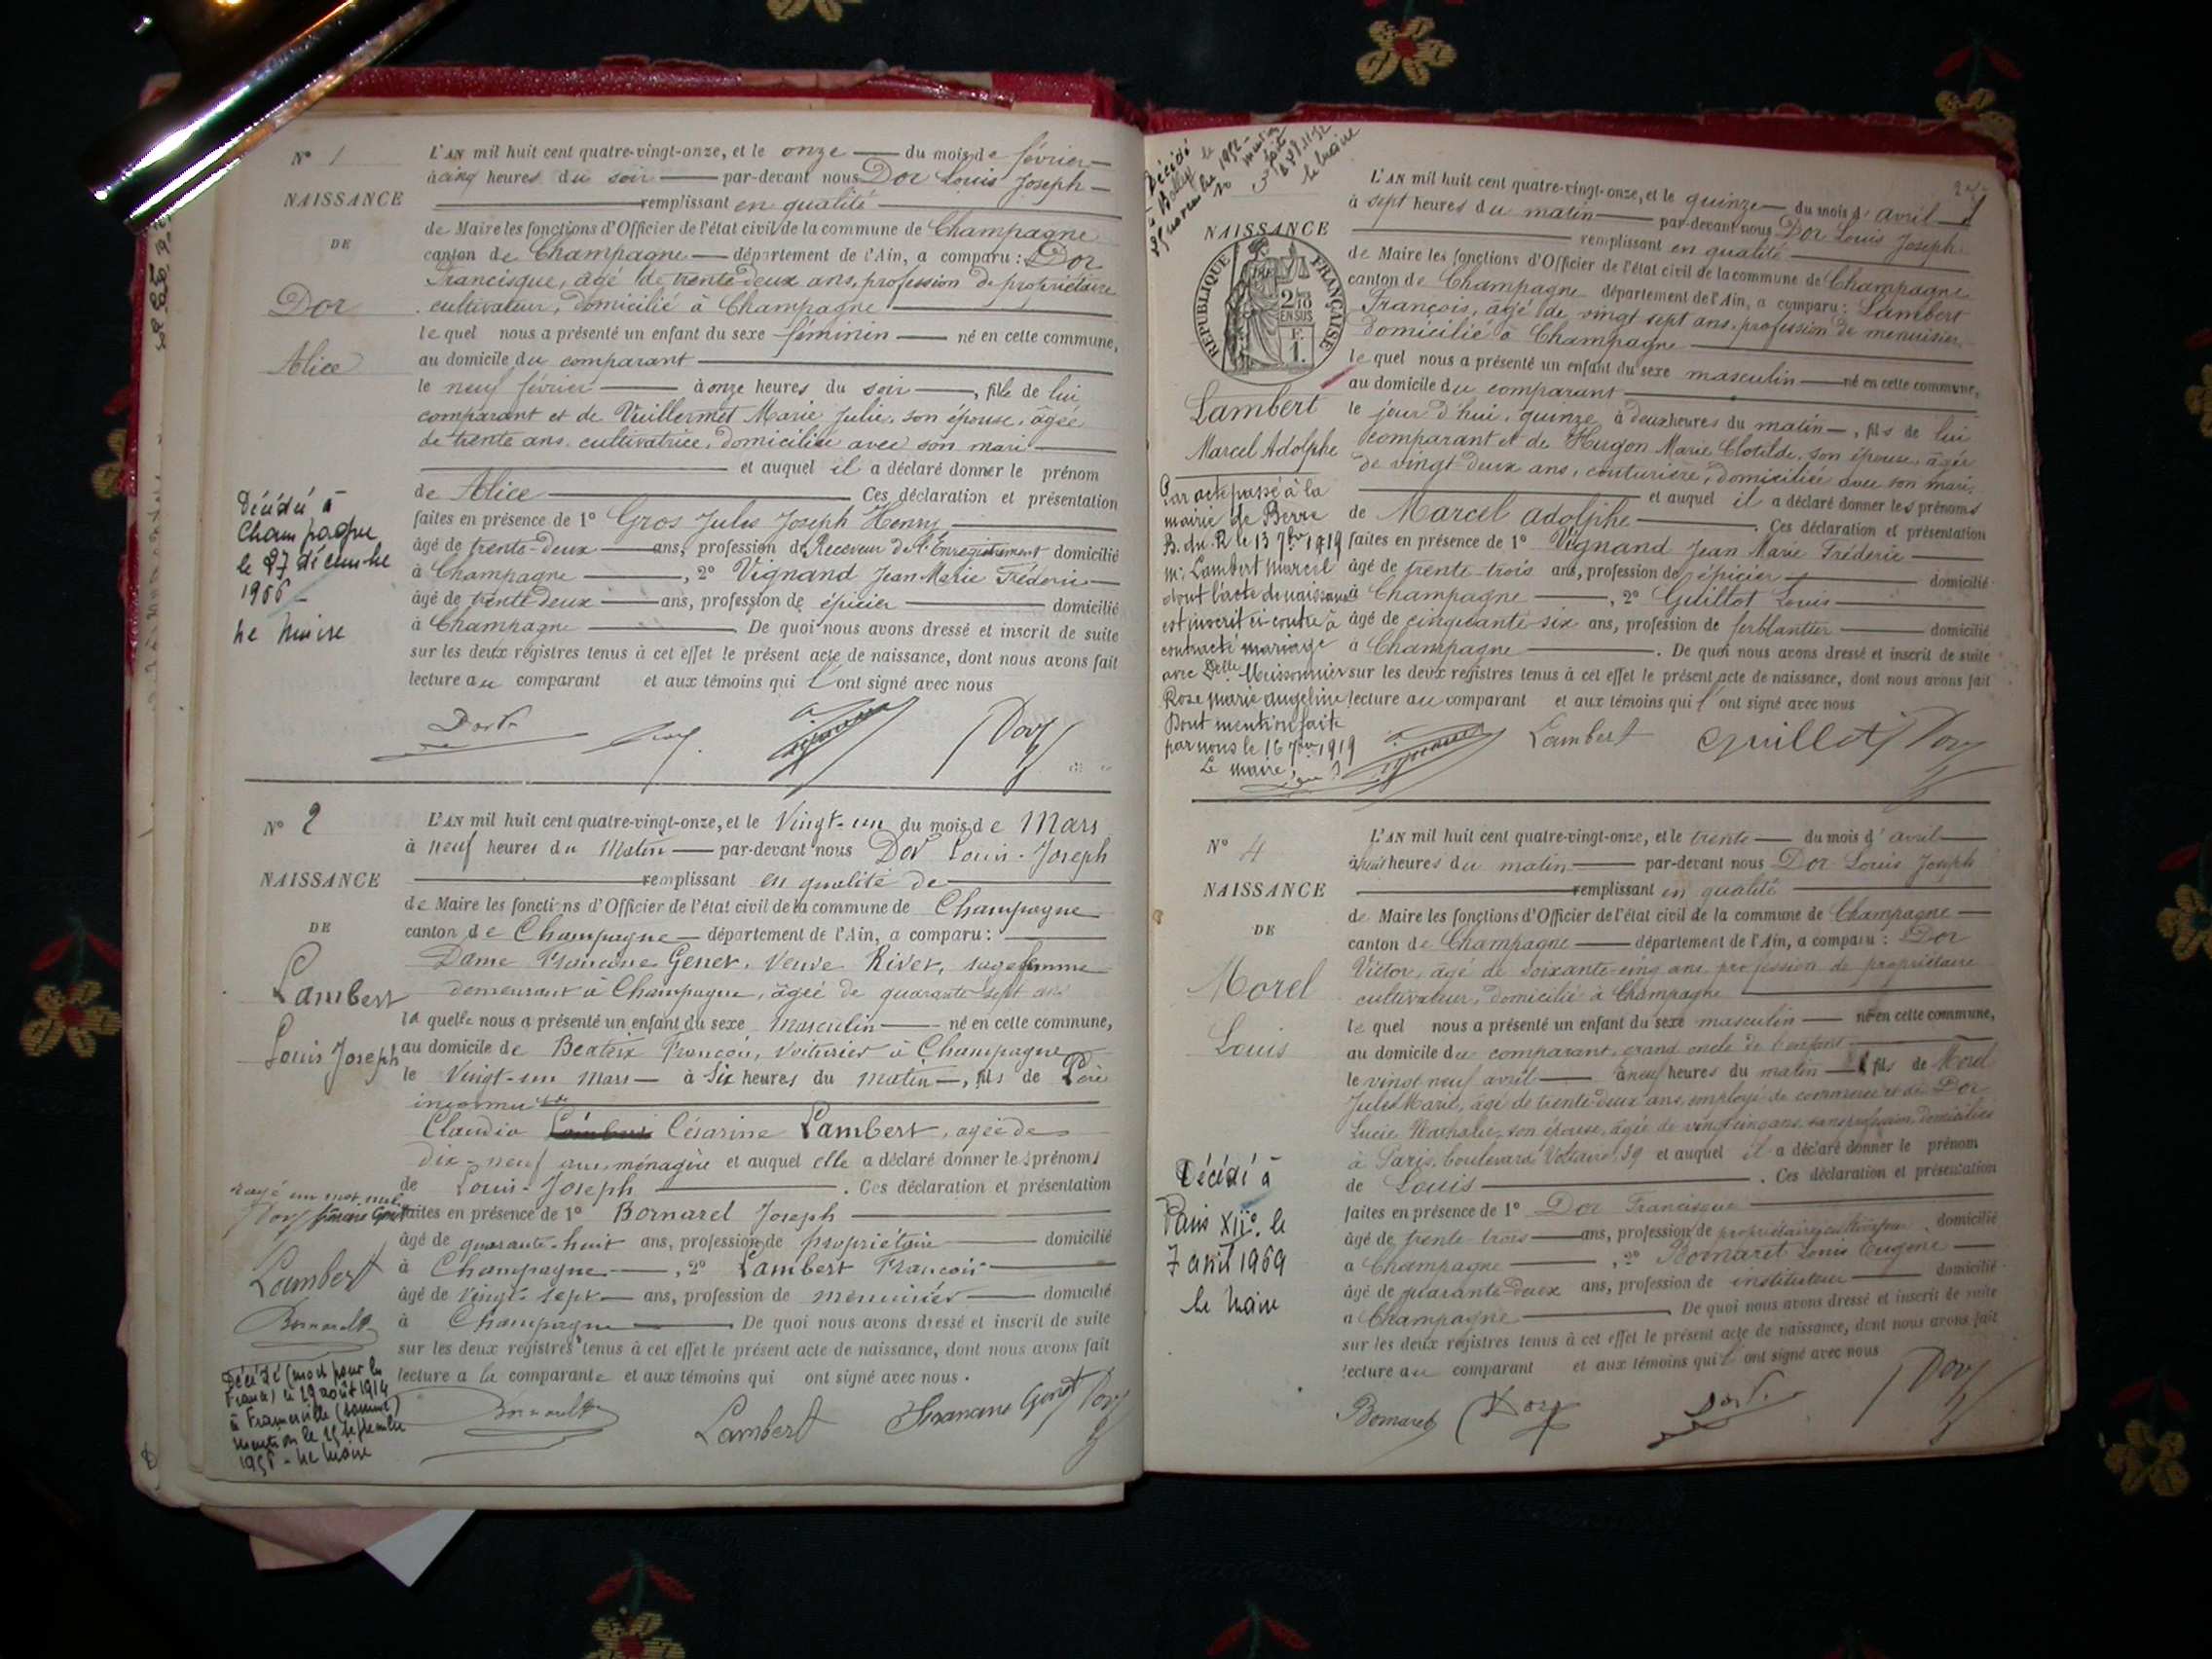 N° 1
NAISSANCE
DE
Dor
Alice
L'AN mil huit cent quatre-vingt-onze, et le onze du mois de février
à cinq heures du soir par-devant nous Dor Louis Joseph
remplissant en qualité
de Maire les fonctions d'Officier de l'état civil de la commune de Champagne
canton de Champagne département de l'Ain, a comparu : Dor
Francisque, âgé de trente deux ans, profession de propriétaire
cultivateur, domicilié à Champagne
le quel nous a présenté un enfant du sexe féminin né en cette commune,
au domicile du comparant
le neuf février à onze heures du soir, fille de lui
comparant et de Vuillermet Marie Julie, son épouse, âgée
de trente ans, cultivatrice, domiciliée avec son mari
et auquel il a déclaré donner le prénom
de Alice Ces déclaration et présentation
faites en présence de 1° Gros Jules Joseph Henry
âgé de trente-deux ans, profession de Receveur de l'Enregistrement domicilié
à Champagne, 2° Vignand Jean Marie Fréderic
âgé de trente deux ans, profession de épicier domicilié
à Champagne De quoi nous avons dressé et inscrit de suite
sur les deux registres tenus à cet effet le présent acte de naissance, dont nous avons fait
lecture au comparant et aux témoins qui l'ont signé avec nous
Décédée à
Champagne
le 27 décembre
1956
Le Maire
N° 2
NAISSANCE
DE
Lambert
Louis Joseph
L'AN mil huit cent quatre-vingt-onze, et le Vingt-un du mois de Mars
à neuf heures du Matin par-devant nous Dor Louis-Joseph
remplissant en qualité de
de Maire les fonctions d'Officier de l'état civil de la commune de Champagne
canton de Champagne département de l'Ain, a comparu :
Dame Genet, Veuve Rivet, sage femme
demeurant à Champagne, âgée de quarante sept ans
la quelle nous a présenté un enfant du sexe Masculin né en cette commune,
au domicile de Beatrix François, Voiturier à Champagne
le Vingt-un Mars à Six heures du matin, fils de Père
inconnu et de
Claudia Césarine Lambert, agée de
dix-neuf ans, ménagère et auquel elle a déclaré donner les prénoms
de Louis-Joseph. Ces déclaration et présentation
faites en présence de 1° Bornarel Joseph
âgé de quarante-huit ans, profession de propriétaire domicilié
à Champagne, 2° Lambert François
âgé de vingt-sept ans, profession de menuisier domicilié
à Champagne De quoi nous avons dressé et inscrit de suite
sur les deux registres tenus à cet effet le présent acte de naissance, dont nous avons fait
lecture a la comparante et aux témoins qui ont signé avec nous.
rayé un mot nul
Lambert
Décédé (mort pour la
France) le 29 août 1914
à Framerville (Somme)
mention le
Le Maire
Lambert
Décédé
à le
1952
Le Maire
NAISSANCE
REPUBLIQUE FRANÇAISE
2/10
EN SUS
F.
1.
Lambert
Marcel Adolphe
L'AN mil huit cent quatre-vingt-onze, et le quinze du mois d'avril
à sept heures du matin par-devant nous Dor Louis Joseph
remplissant en qualité
de Maire les fonctions d'Officier de l'état civil de la commune de Champagne
canton de Champagne département de l'Ain, a comparu : Lambert
François, âgé de vingt sept ans, profession de menuisier
domicilié à Champagne
le quel nous a présenté un enfant du sexe masculin né en cette commune,
au domicile du comparant
le jour d'hui, quinze à deux heures du matin, fils de lui
comparant et de Hugon Marie Clotilde, son épouse, âgée
de vingt-deux ans, couturière, domiciliée avec son mari,
et auquel il a déclaré donner les prénoms
de Marcel Adolphe. Ces déclaration et présentation
faites en présence de 1° Vignand Jean Marie Fréderic
âgé de trente-trois ans, profession de épicier domicilié
à Champagne, 2° Guillot Louis
âgé de cinquante six ans, profession de ferblantier domicilié
à Champagne. De quoi nous avons dressé et inscrit de suite
sur les deux registres tenus à cet effet le présent acte de naissance, dont nous avons fait
lecture au comparant et aux témoins qui l'ont signé avec nous
Par acte passé à la
mairie de Berre
B. du R. le 13 7bre 1919
Mr Lambert Marcel
dont l'acte de naissance
est inscrit ci-contre à
contracté mariage
avec Delle Meissonnier
Rose Marie Angeline
Dont mention faite
par nous le 16 7bre 1919
Le maire,
Lambert Guillot
N° 4
NAISSANCE
DE
Morel
Louis
L'AN mil huit cent quatre-vingt-onze, et le trente du mois d'avril
à huit heures du matin par-devant nous Dor Louis Joseph
remplissant en qualité
de Maire les fonctions d'Officier de l'état civil de la commune de Champagne
canton de Champagne département de l'Ain, a comparu : Dor
Victor, âgé de soixante-cinq ans, profession de propriétaire
cultivateur, domicilié à Champagne
le quel nous a présenté un enfant du sexe masculin né en cette commune,
au domicile du comparant, grand oncle de l'enfant
le vingt neuf avril à neuf heures du matin fils de Morel
Jules Marie, âgé de trente-deux ans, employé de commerce et de Dor
Lucie Nathalie, son épouse, âgée de vingt cinq ans, sans profession, domiciliés
à Paris, boulevard Voltaire, 39 et auquel il a déclaré donner le prénom
de Louis. Ces déclaration et présentation
faites en présence de 1° Dor Francisque
âgé de trente trois ans, profession de propriétaire cultivateur domicilié
à Champagne, 2° Bornarel Louis Eugène
âgé de quarante-deux ans, profession de instituteur domicilié
à Champagne De quoi nous avons dressé et inscrit de suite
sur les deux registres tenus à cet effet le présent acte de naissance, dont nous avons fait
lecture au comparant et aux témoins qui l'ont signé avec nous
Décédé à
Paris XIIe le
7 avril 1969
Le Maire
Bornarel